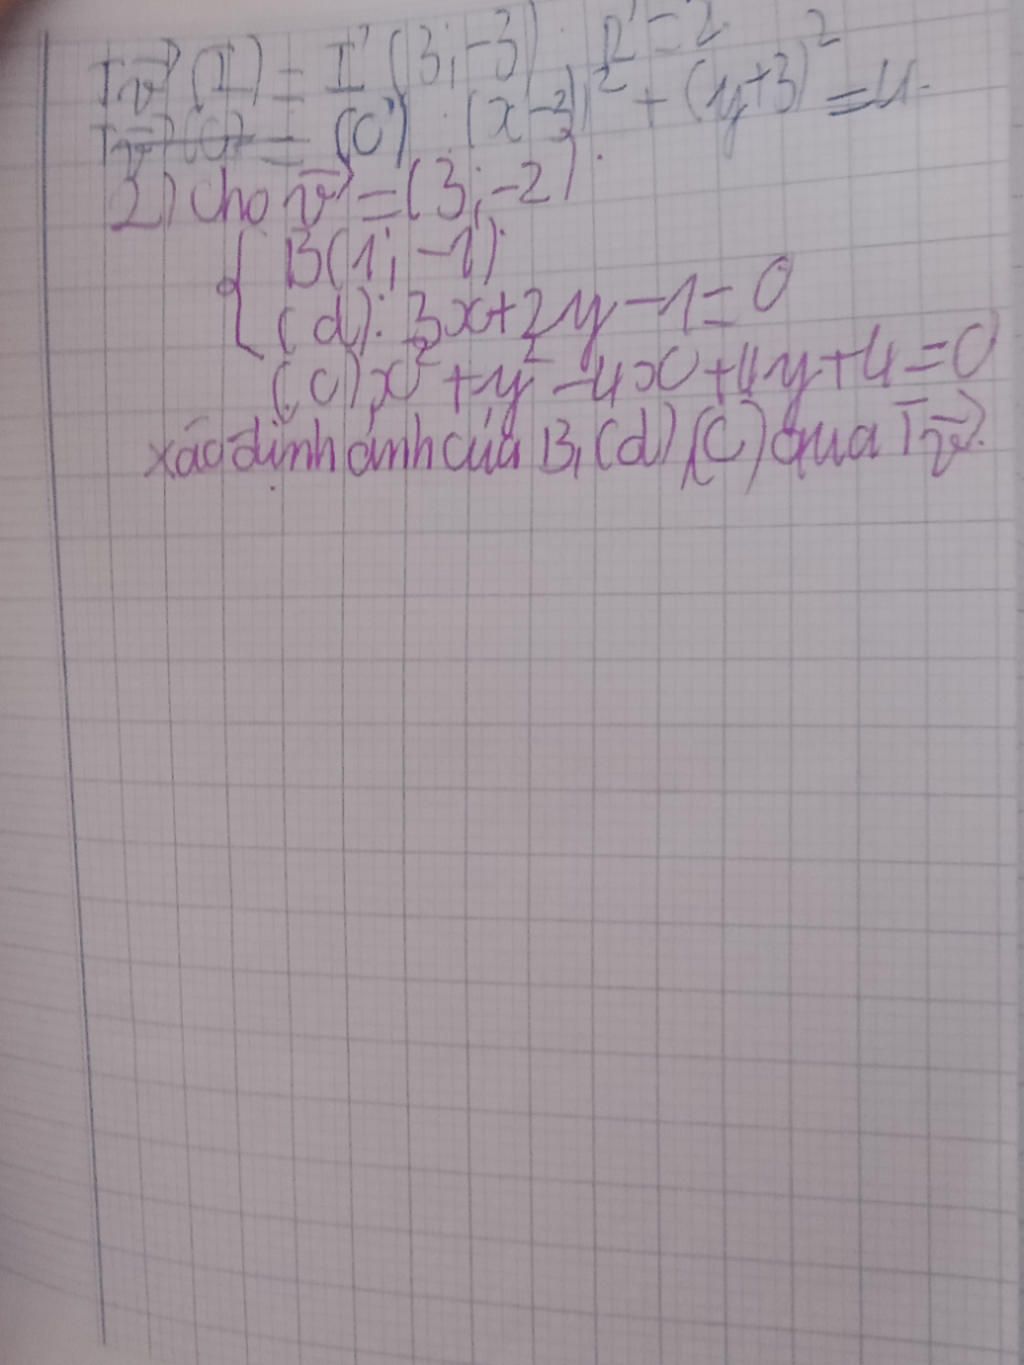 T v⃗ (I) = I' (3; -3). R' = 2
T v⃗ (C) = (C') : (x-3)² + (y+3)² = 4.
2) Cho v⃗ = (3; -2).
B(1; -1).
(d): 3x + 2y - 1 = 0
(C) x² + y² - 4x + 4y + 4 = 0
xác định ảnh của B, (d), (C) qua T v⃗.